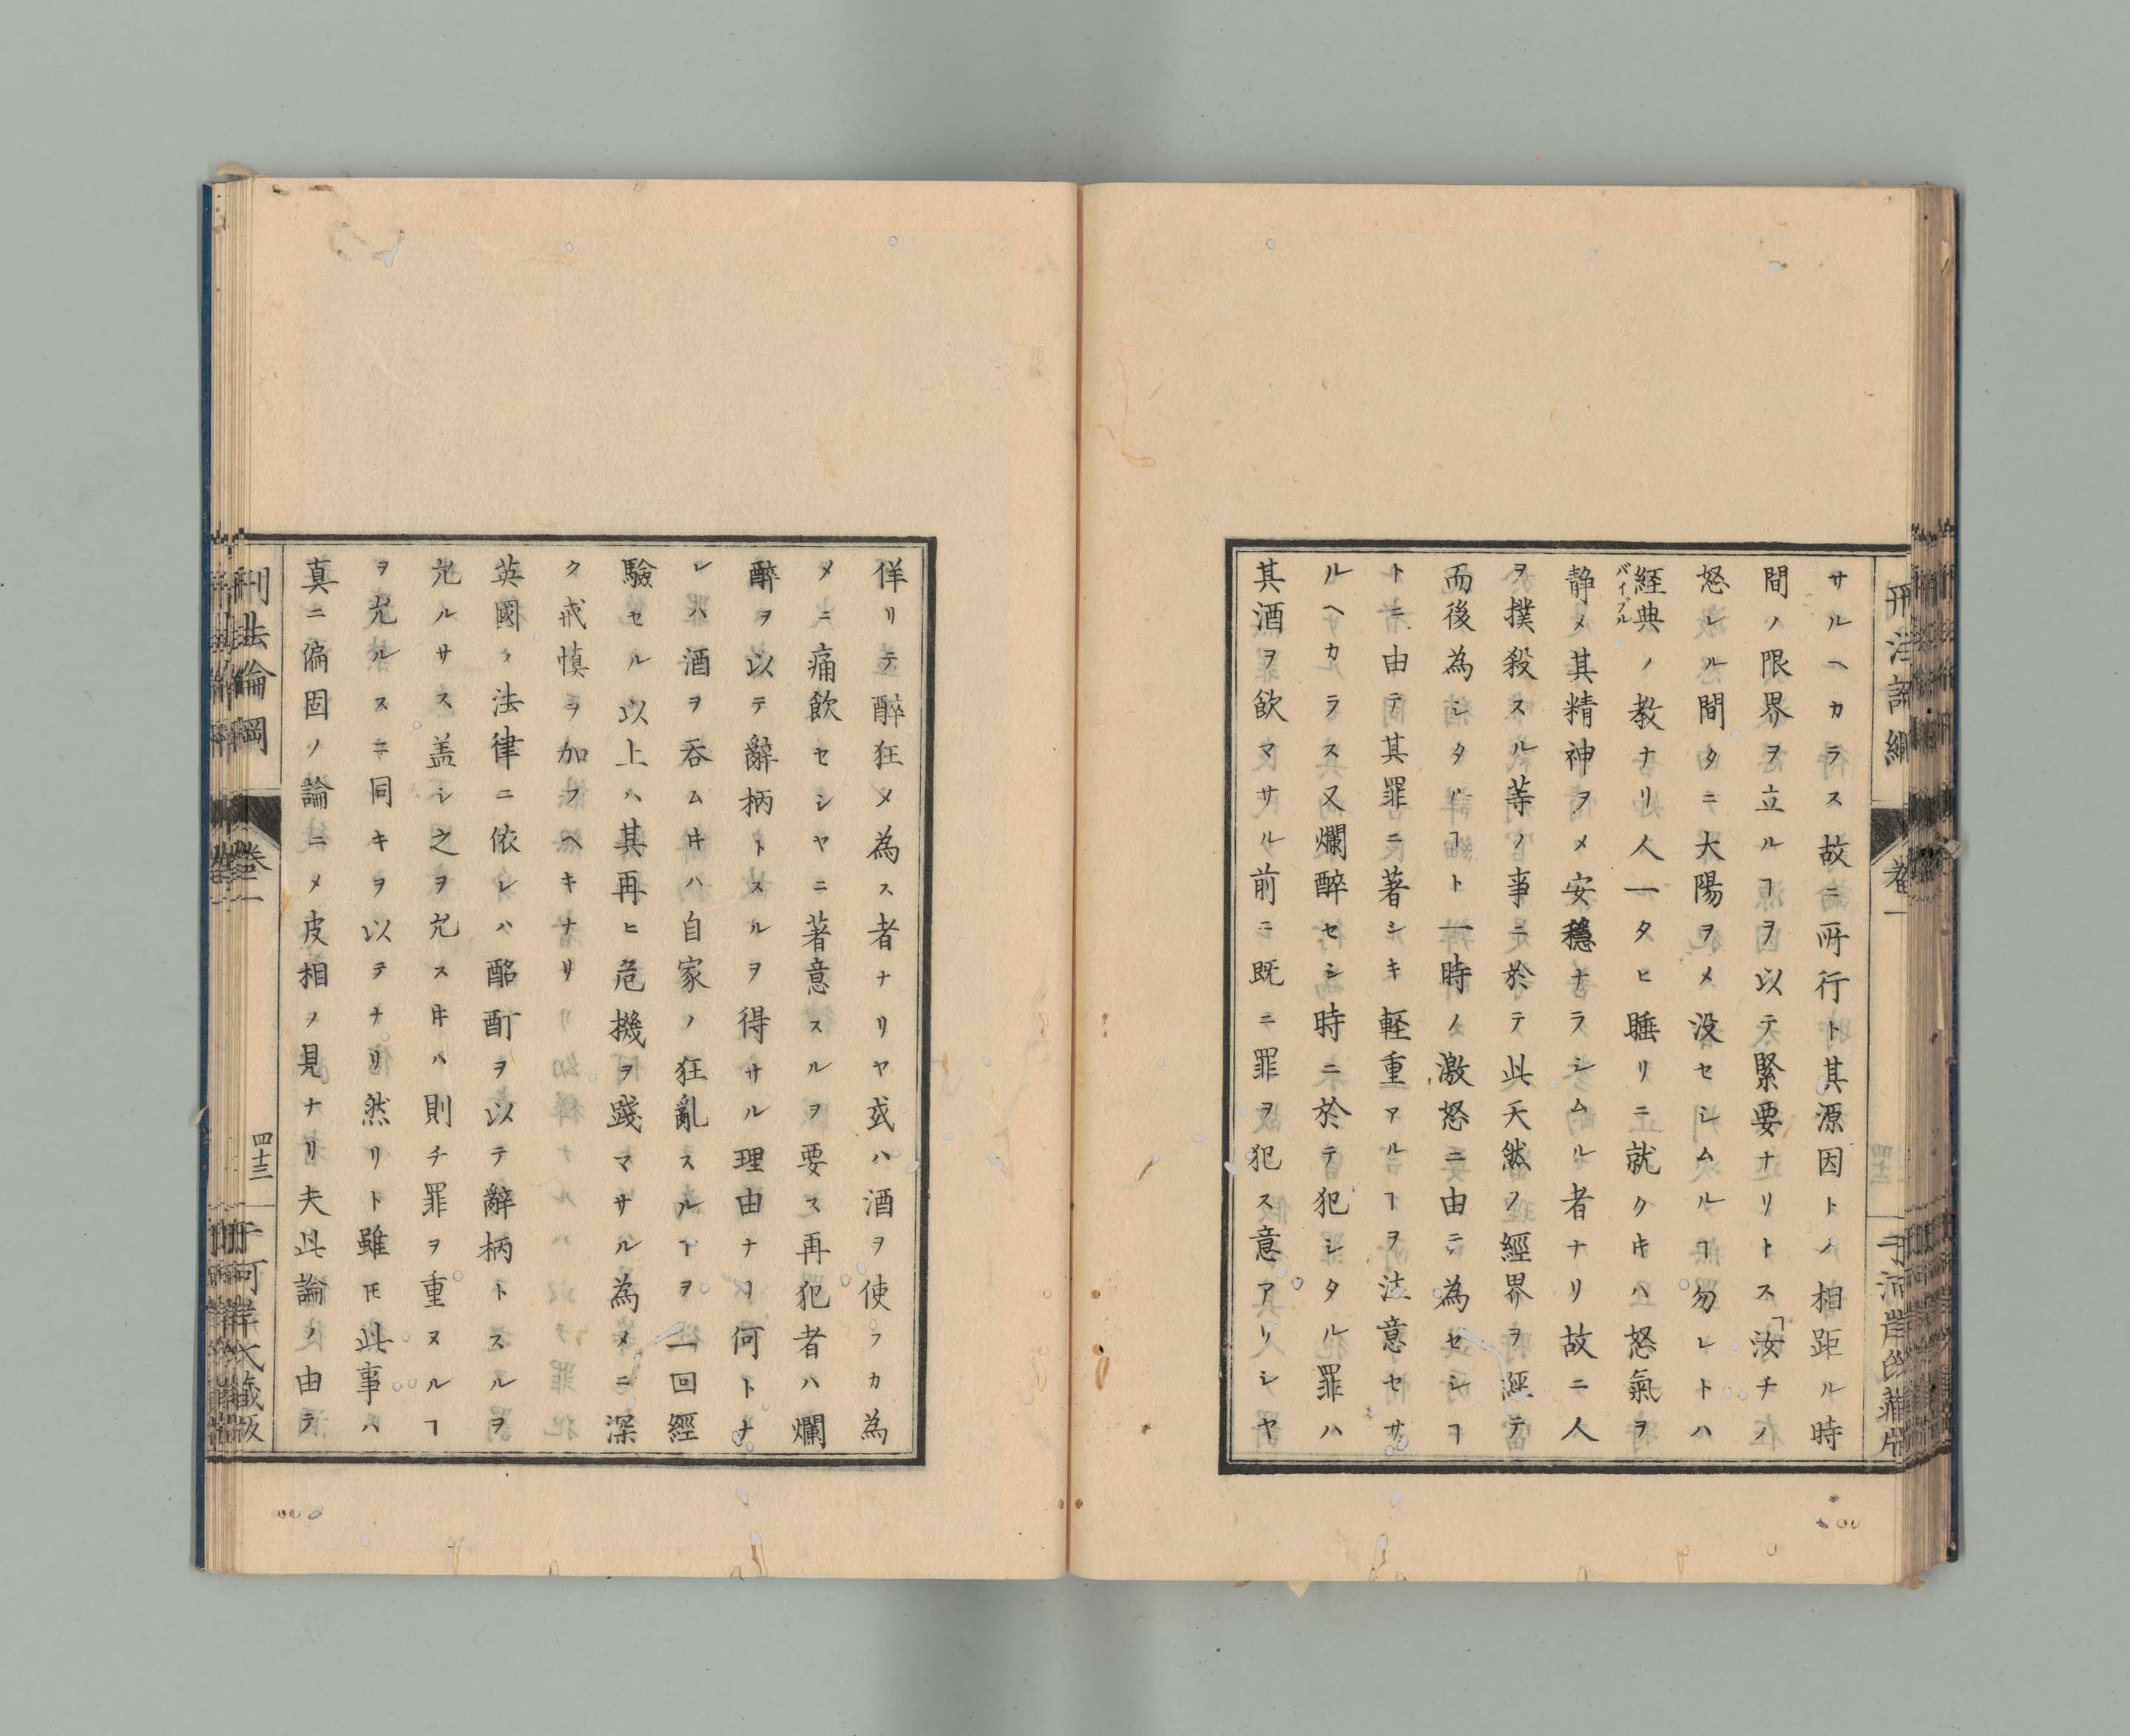 サルヘカラス故ニ所行ト其源因トノ相距ル時
間ノ限界ヲ立ルヿヲ以テ緊要ナリトス「汝チノ
怒レル間タニ大陽ヲメ没セシムルヿ勿レトハ
経典ノ教ナリ人一タヒ睡リニ就クキハ怒氣ヲ
バイブル
静メ其精神ヲメ安穏ナラシムル者ナリ故ニ人
ヲ撲殺スル等ノ事ニ於テ此天然ノ經界ヲ經テ
而後為シタルヿト一時ノ激怒ニ由テ為セシヿ
トニ由テ其罪ニ著シキ軽重アルヿヲ注意セサ
ルヘカラス又爛醉セシ時ニ於テ犯シタル罪ハ
其酒ヲ飲マサル前ニ既ニ罪ヲ犯ス意アリシヤ
佯リテ醉狂メ為ス者ナリヤ或ハ酒ヲ使フカ為
メニ痛飲セシヤニ著意スルヲ要ス再犯者ハ爛
醉ヲ以テ辭柄トスルヲ得サル理由ナシ何トナ
レハ酒ヲ呑ムキハ自家ノ狂亂スルヿヲ一回經
驗セル以上ハ其再ヒ危機ヲ踐マサル為メニ深
ク戒慎ヲ加フヘキナリ
英國ノ法律ニ依レハ酩酊ヲ以テ辭柄トスルヲ
允ルサス盖シ之ヲ允スキハ則チ罪ヲ重ヌルヿ
ヲ允ルスニ同キヲ以テナリ然リト雖モ此事ハ
真ニ偏固ノ論ニメ皮相ノ見ナリ夫此論ノ由テ
刑法論綱
卷一
四十三
于河岸氏蔵版